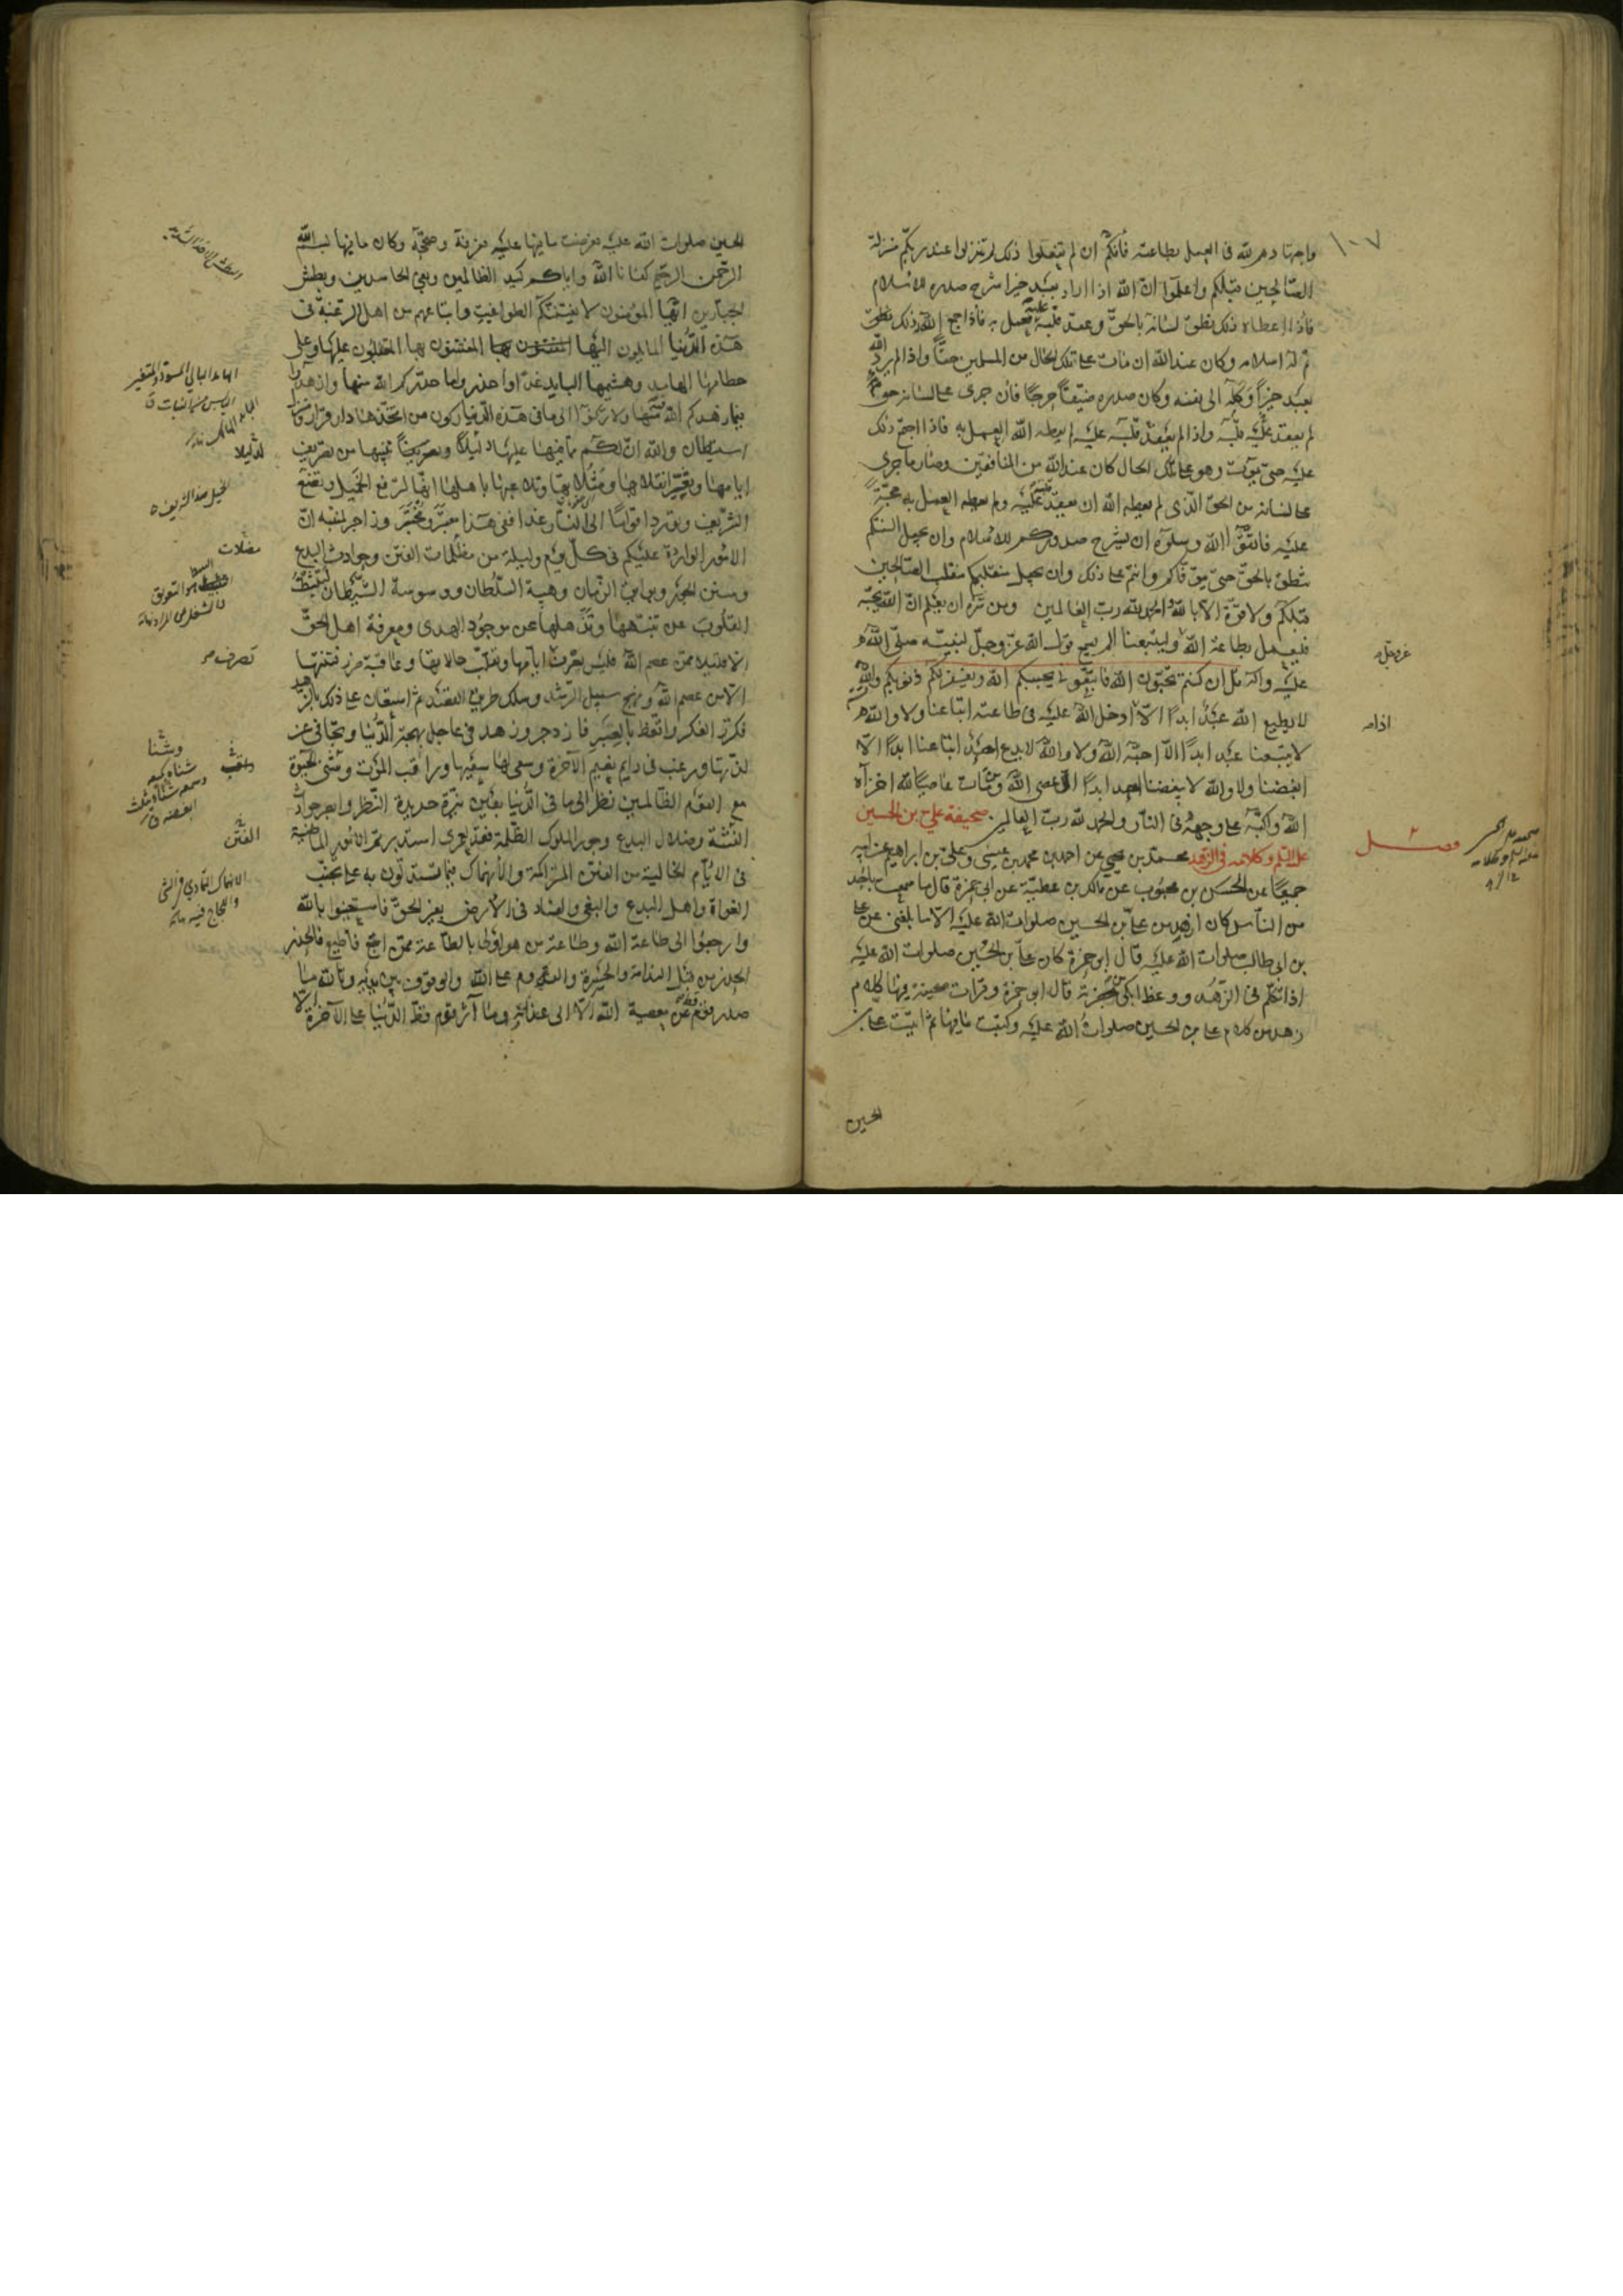 ١٠٧
واجتهادهم لله فى العمل بطاعته فانكم ان لم تفعلوا ذلك لم تنزلوا عند ربكم منزلة
الصالحين قبلكم واعلموا ان الله اذا اراد بعبد خيرا شرح صدره للاسلام
فاذا اعطاه ذلك نطق لسانه بالحق وعقد قلبه عليه فعمل به فاذا جمع الله ذلك
تم له اسلامه وكان عند الله ان مات على تلك الحال من المسلمين حقا واذا لم يرد الله
بعبد خيرا وكله الى نفسه وكان صدره ضيقا حرجا فان جرى على لسانه حق
لم يعقد عليه قلبه واذا لم يعقد قلبه عليه لم يعطه الله العمل به فاذا اجتمع ذلك
عليه حتى يموت وهو على تلك الحال كان عند الله من المنافقين وصار ما جرى
على لسانه من الحق الذى لم يعطه الله ان يعقد قلبه عليه ولم يعطه العمل به حجة
عليه فاتقوا الله وسلوه ان يشرح صدوركم للاسلام وان يجعل السنتكم
تنطق بالحق حتى يتوفاكم وانتم على ذلك وان يجعل منقلبكم منقلب الصالحين
قبلكم ولا قوة الا بالله والحمد لله رب العالمين ومن سره ان يعلم ان الله يحبه
فليعمل بطاعة الله وليتبعنا الم يسمع قول الله عز وجل لنبيه صلى الله
عليه واله قل ان كنتم تحبون الله فاتبعونى يحببكم الله ويغفر لكم ذنوبكم والله
لا يطيع الله عبد ابدا الا ادخل الله عليه فى طاعته اتباعنا ولا والله
لا يتبعنا عبد ابدا الا احبه الله ولا والله لا يدع احد اتباعنا ابدا الا
ابغضنا ولا والله لا يبغضنا احد ابدا الا عصى الله ومن مات عاصيا لله اخزاه
الله واكبه على وجهه فى النار والحمد لله رب العالمين صحيفة على بن الحسين
عليه السلم وكلامه فى الزهد محمد بن يحيى عن احمد بن محمد بن عيسى وعلى بن ابراهيم عن ابيه
جميعا عن الحسن بن محبوب عن مالك بن عطية عن ابى حمزة قال ما سمعت باحد
من الناس كان ازهد من على بن الحسين صلوات الله عليه الا ما بلغنى عن على
بن ابى طالب صلوات الله عليه قال ابو حمزة كان على بن الحسين صلوات الله عليه
اذا تكلم فى الزهد ووعظ ابكى من بحضرته قال ابو حمزة وقرات صحيفة فيها كلام
زهد من كلام على بن الحسين صلوات الله عليه وكتبت ما فيها ثم اتيت على بن
الحسين
عز وجل
اذا
فصل
الحسين صلوات الله عليه فعرضت ما فيها عليه فعرفه وصححه وكان ما فيها بسم الله
الرحمن الرحيم كفانا الله واياكم كيد الظالمين وبغى الحاسدين وبطش
الجبارين ايها المؤمنون لا يفتننكم الطواغيت واتباعهم من اهل الرغبة فى
هذه الدنيا المايلون اليها المفتنون بها المقبلون عليها وعلى
حطامها الهامد وهشيمها البايد غدا واحذروا ما حذركم الله منها وازهدوا
فيما زهدكم الله فيه منها ولا تركنوا الى ما فى هذه الدنيا ركون من اتخذها دار قرار ومنزل
استيطان والله ان لكم مما فيها عليها دليلا وتنبيها من تصريف
ايامها وتغير انقلابها ومثلاتها وتلاعبها باهلها انها لترفع الخميل وتضع
الشريف وتورد اقواما الى النار غدا ففى هذا معتبر ومختبر وزاجر لمنتبه ان
الامور الواردة عليكم فى كل يوم وليلة من مظلمات الفتن وحوادث البدع
وسنن الجور وبوايق الزمان وهيبة السلطان ووسوسة الشيطان لتثبط
القلوب عن تنبهها وتذهلها عن موجود الهدى ومعرفة اهل الحق
الا قليلا ممن عصم الله فليس يعرف تصرف ايامها وتقلب حالاتها وعاقبة ضرر فتنتها
الا من عصم الله ونهج سبيل الرشد وسلك طريق القصد ثم استعان على ذلك بالزهد
فكرر الفكر واتعظ بالعبر فازدجر وزهد فى عاجل بهجة الدنيا وتجافى عن
لذتها ورغب فى دايم نعيم الآخرة وسعى لها سعيها وراقب الموت وشنى الحيوة
مع القوم الظالمين نظر الى ما فى الدنيا بعين نيرة حديدة النظر وابصر حوادث
الفتنة وضلال البدع وجور الملوك الظلمة فقد لعمرى استدبرتم الامور الماضية
فى الايام الخالية من الفتن المتراكمة والانهماك فيما تستدلون به على تجنب
الغواة واهل البدع والبغى والفساد فى الارض بغير الحق فاستعينوا بالله
وارجعوا الى طاعة الله وطاعة من هو اولى بالطاعة ممن اتبع فاطيع فالحذر
الحذر من قبل الندامة والحسرة والقدوم على الله والوقوف بين يديه وتالله ما
صدر قوم قط عن معصية الله الا الى عذابه وما آثر قوم قط الدنيا على الآخرة الا
مضلات
تصرف
وشنا
الفتن
الانهماك التمادى فى الشئ